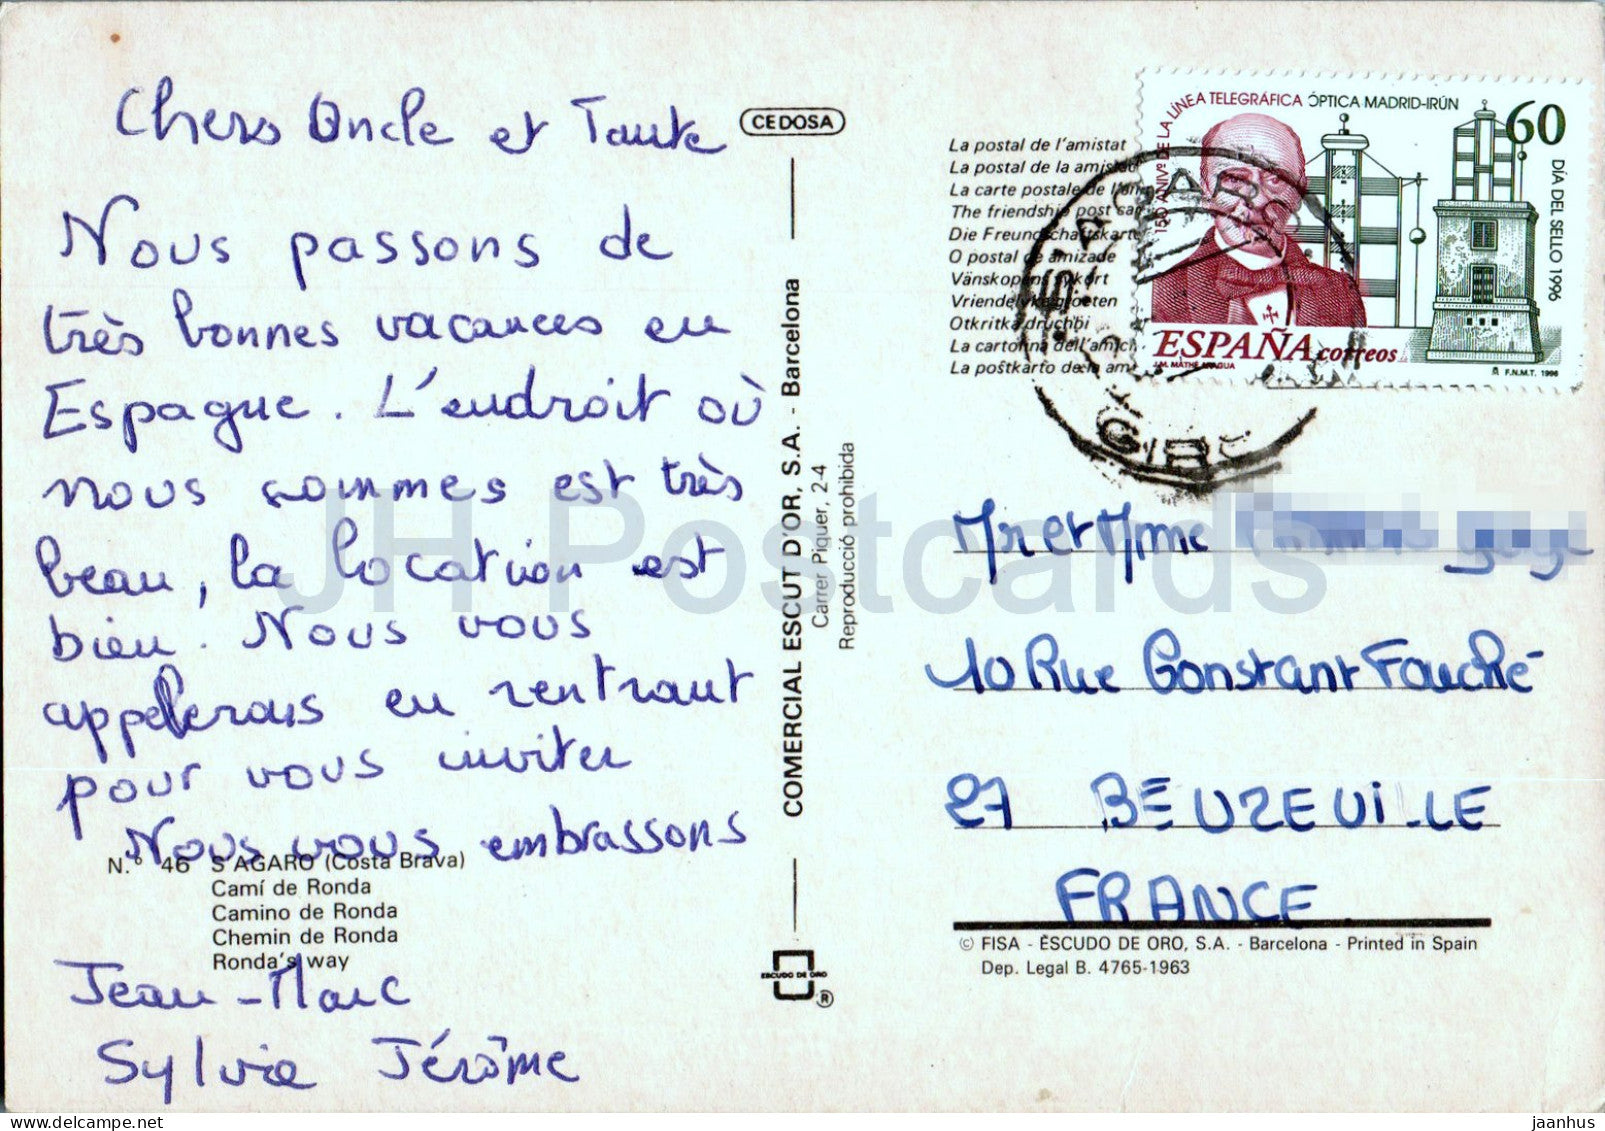 Chers Oncle et Tante
Nous passons de
très bonnes vacances en
Espagne. L'endroit où
nous sommes est très
beau, la location est
bien. Nous vous
appelerons en rentrant
pour vous inviter
Nous vous embrassons
N.º 46 S'AGARO (Costa Brava)
Camí de Ronda
Camino de Ronda
Chemin de Ronda
Ronda's way
Jean-Marc
Sylvie Jérôme
CEDOSA
COMERCIAL ESCUT D'OR, S.A. - Barcelona
Carrer Piquer, 2-4
Reproducció prohibida
ESCUDO DE ORO
®
La postal de l'amistat
La postal de la amistad
La carte postale de l'am
The friendship post car
Die Freundschaftskarte
O postal de amizade
Vänskopens vykort
Vriendelyke groeten
Otkritka druchbi
La cartolina dell'amici
La poŝtkarto de la am
150 ANIVº DE LA LÍNEA TELEGRÁFICA ÓPTICA MADRID-IRÚN
60
DÍA DEL SELLO 1996
ESPAÑA correos
J.M. MATHÉ ARAGUA
F.N.M.T. 1996
Mr et Mme
10 Rue Constant Fouché
27 BEUZEVILLE
FRANCE
© FISA - ESCUDO DE ORO, S.A. - Barcelona - Printed in Spain
Dep. Legal B. 4765-1963
JH Postcards
www.delcampe.net
jaanhus